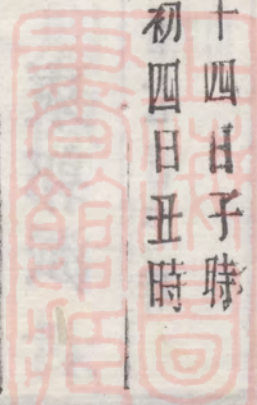 十四日子時
初四日丑時